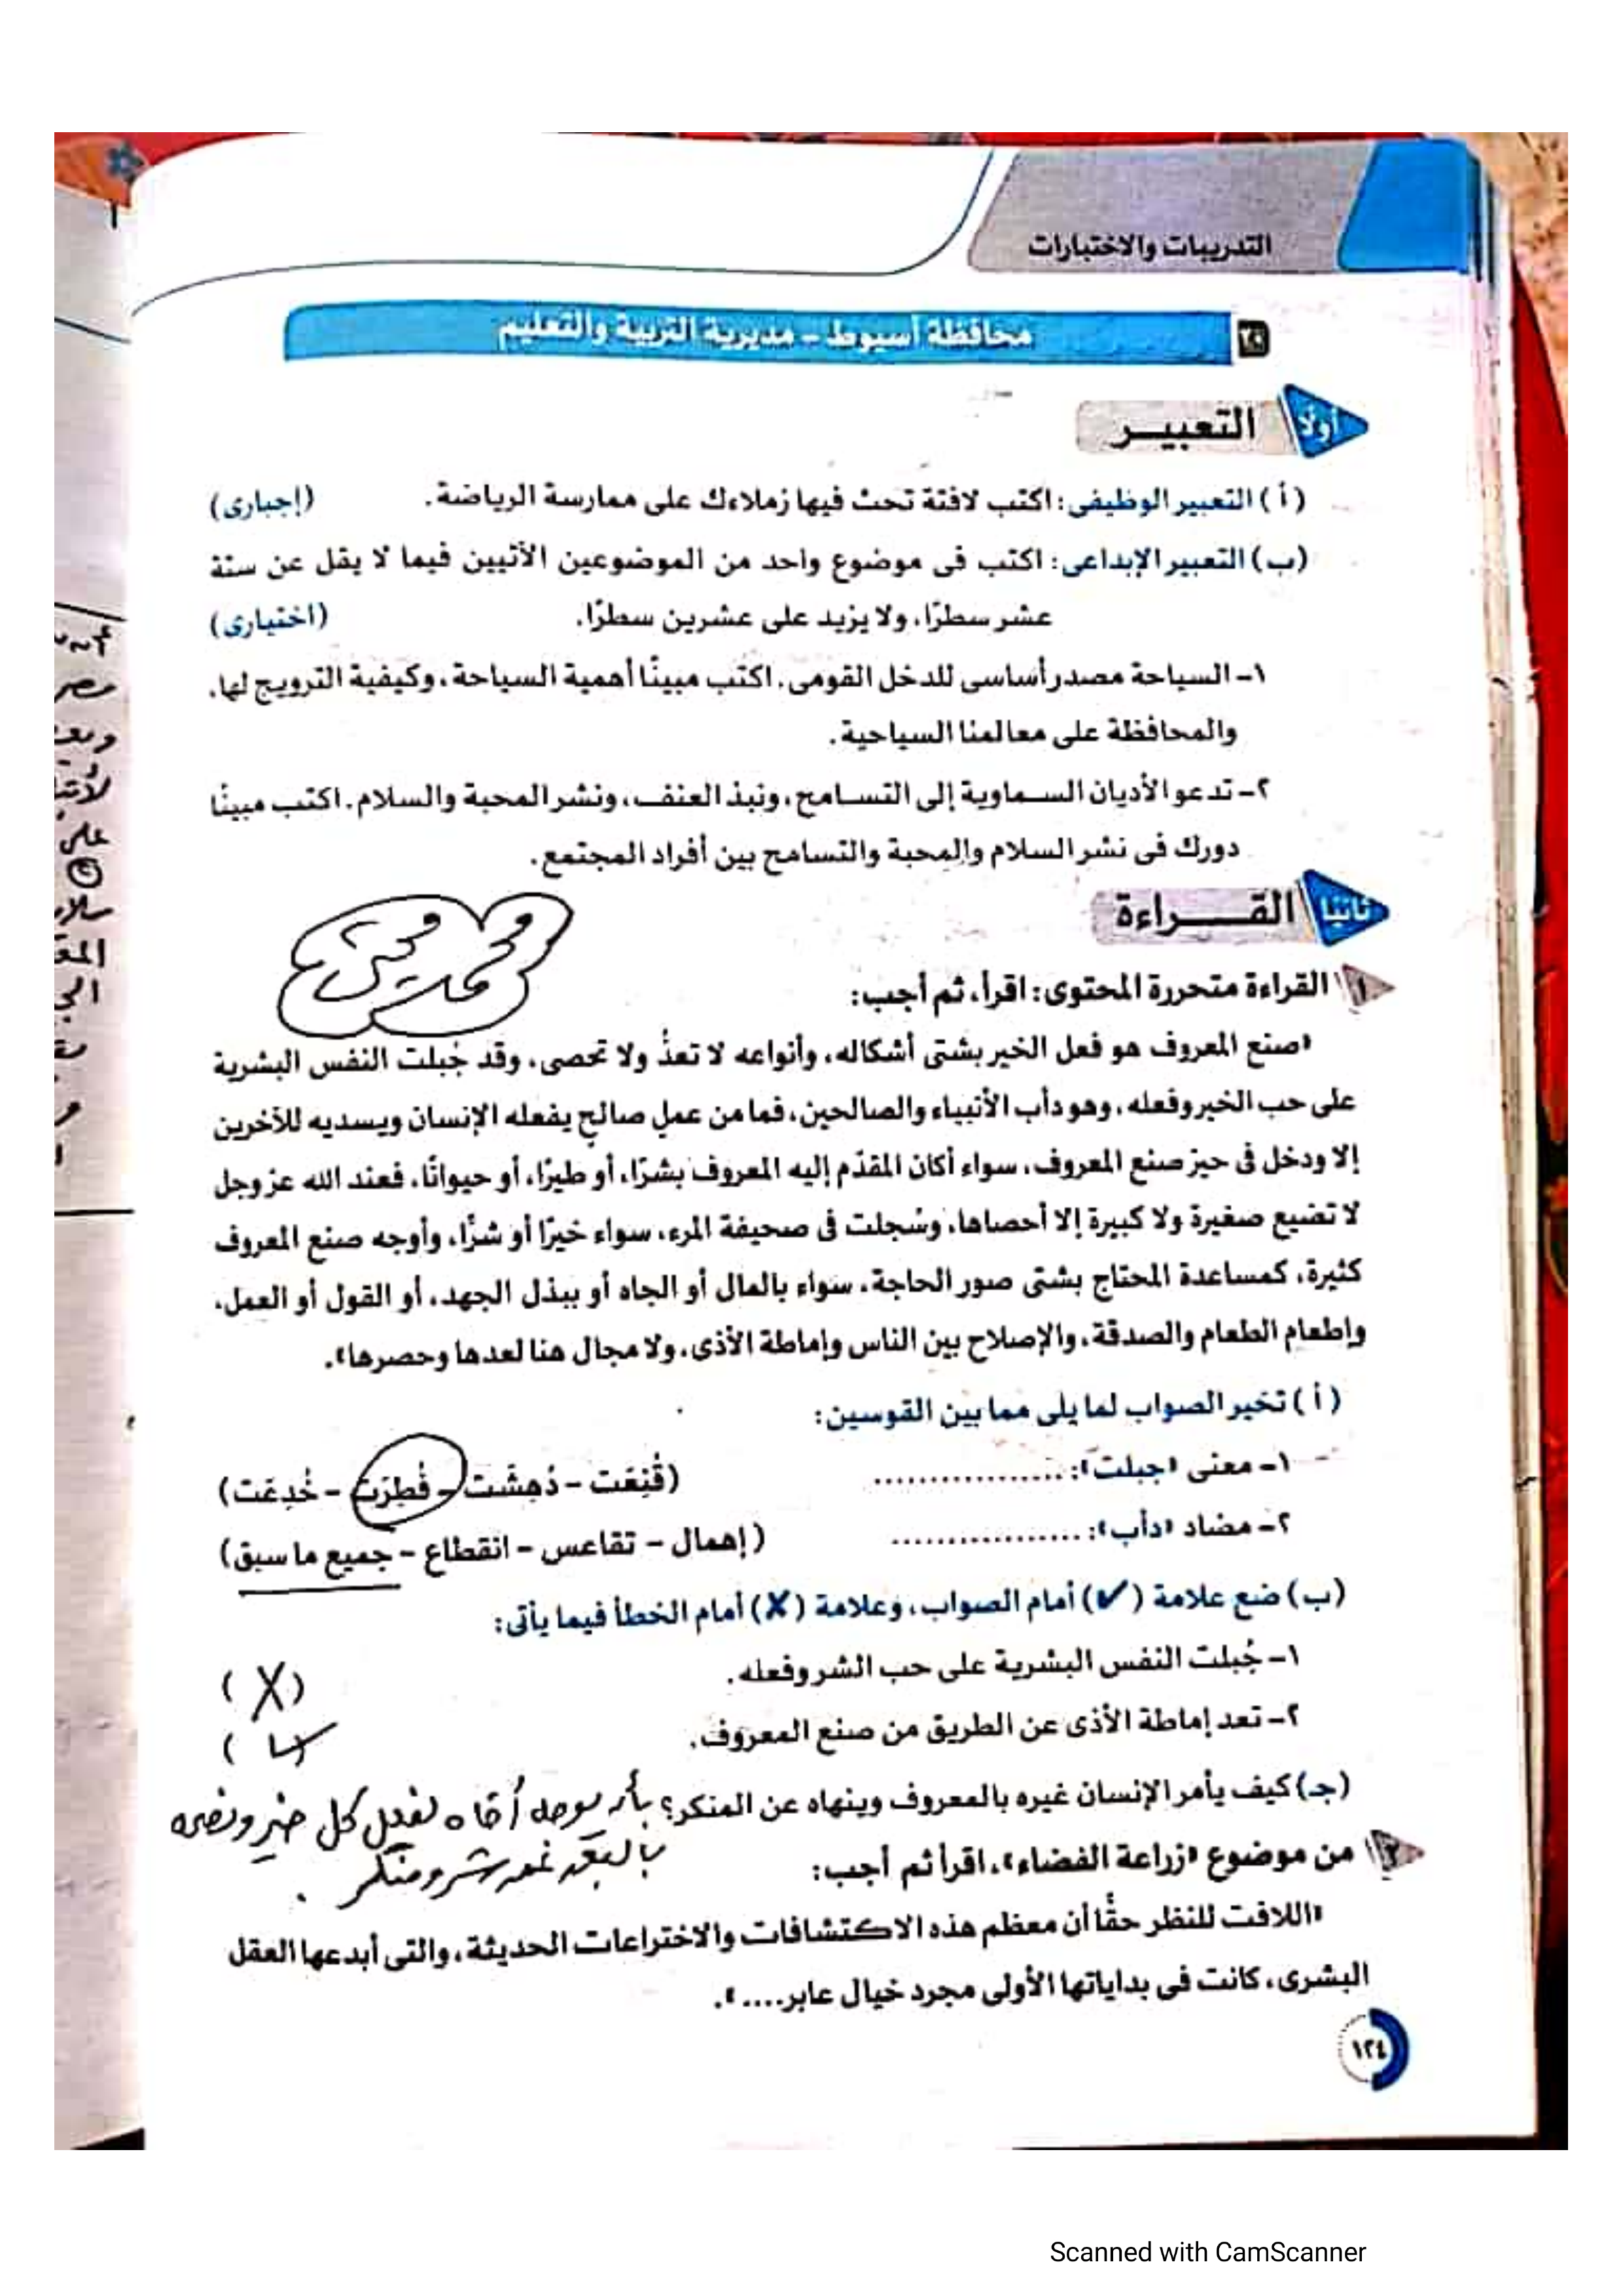 التدريبات والاختبارات
٢٠ محافظة أسيوط - مديرية التربية والتعليم
أولًا التعبيـــر
(أ) التعبير الوظيفى: اكتب لافتة تحث فيها زملاءك على ممارسة الرياضة. (إجبارى)
(ب) التعبير الإبداعى: اكتب فى موضوع واحد من الموضوعين الآتيين فيما لا يقل عن ستة
عشر سطرًا، ولا يزيد على عشرين سطرًا. (اختيارى)
١- السياحة مصدر أساسى للدخل القومى. اكتب مبينًا أهمية السياحة، وكيفية الترويج لها،
والمحافظة على معالمنا السياحية.
٢- تدعو الأديان السماوية إلى التسامح، ونبذ العنف، ونشر المحبة والسلام. اكتب مبينًا
دورك فى نشر السلام والمحبة والتسامح بين أفراد المجتمع.
ثانيًا القـــراءة
محمد
١ القراءة متحررة المحتوى: اقرأ، ثم أجب:
«صنع المعروف هو فعل الخير بشتى أشكاله، وأنواعه لا تعدُّ ولا تحصى، وقد جُبلت النفس البشرية
على حب الخير وفعله، وهو دأب الأنبياء والصالحين، فما من عملٍ صالحٍ يفعله الإنسان ويسديه للآخرين
إلا ودخل فى حيز صنع المعروف، سواء أكان المقدّم إليه المعروف بشرًا، أو طيرًا، أو حيوانًا، فعند الله عز وجل
لا تضيع صغيرة ولا كبيرة إلا أحصاها، وسُجلت فى صحيفة المرء، سواء خيرًا أو شرًّا، وأوجه صنع المعروف
كثيرة، كمساعدة المحتاج بشتى صور الحاجة، سواء بالمال أو الجاه أو ببذل الجهد، أو القول أو العمل،
وإطعام الطعام والصدقة، والإصلاح بين الناس وإماطة الأذى، ولا مجال هنا لعدها وحصرها».
(أ) تخير الصواب لما يلى مما بين القوسين:
١- معنى «جبلت»: ................. (قُنِعَت - دُهِشَت - فُطِرَت - خُدِعَت)
٢- مضاد «دأب»: ................. (إهمال - تقاعس - انقطاع - جميع ما سبق)
(ب) ضع علامة (✔) أمام الصواب، وعلامة (✘) أمام الخطأ فيما يأتى:
١- جُبلت النفس البشرية على حب الشر وفعله. (X)
٢- تعد إماطة الأذى عن الطريق من صنع المعروف. (✓)
(جـ) كيف يأمر الإنسان غيره بالمعروف وينهاه عن المنكر؟ بأن يوجه أخاه لفعل كل خير ونصحه
بالبعد عن شر ومنكر .
٢ من موضوع «زراعة الفضاء»، اقرأ ثم أجب:
«اللافت للنظر حقًّا أن معظم هذه الاكتشافات والاختراعات الحديثة، والتى أبدعها العقل
البشرى، كانت فى بداياتها الأولى مجرد خيال عابر....».
١٢٤
Scanned with CamScanner